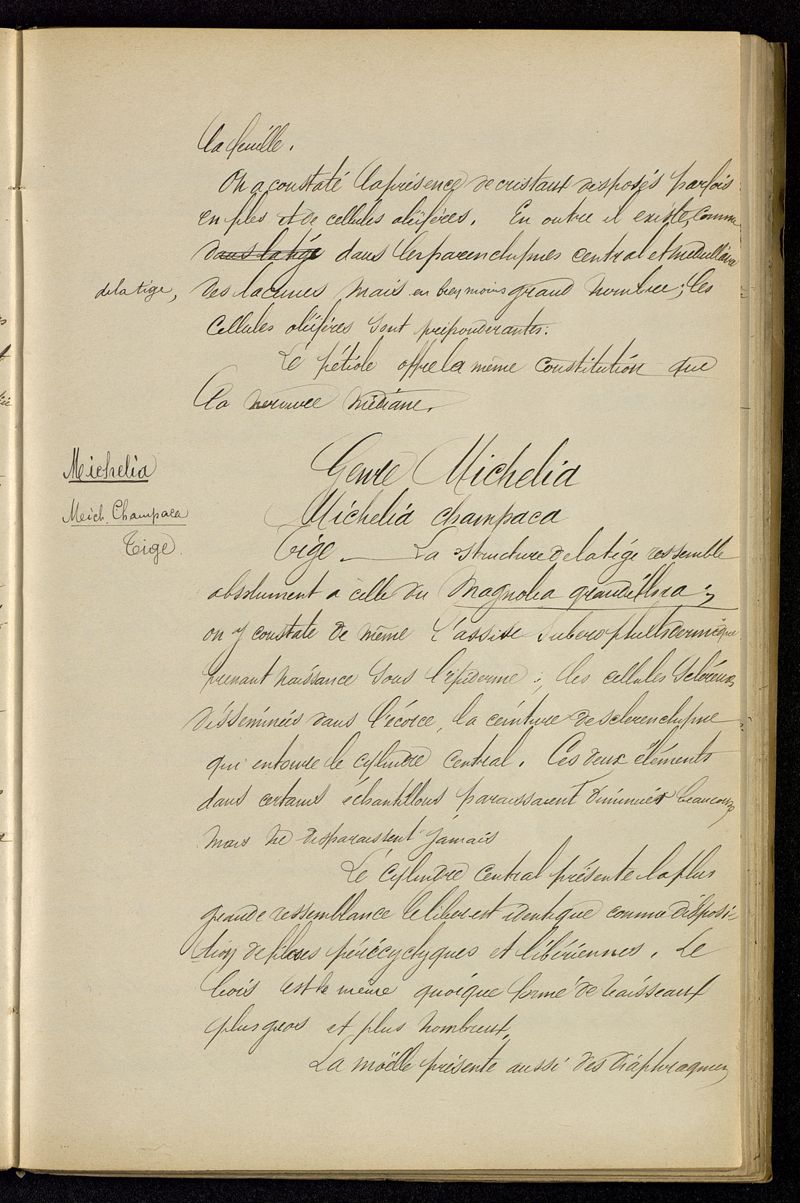 la feuille.
On a constaté la présence de cristaux disposés parfois
en piles et de cellules oléifères. En outre il existe, comme
dans la tige dans les parenchymes central et médullaire
de la tige, des lacunes mais en bien moins grand nombre; les
cellules oléifères sont prépondérantes.
Le pétiole offre la même constitution que
la nervure médiane.
Michelia
Genre Michelia
Mich. Champaca
Michelia champaca
Tige
Tige — La structure de la tige ressemble
absolument à celle du Magnolia grandiflora;
on y constate de même l'assise subero phellodermique
prenant naissance sous l'épiderme; les cellules scléreuses
disséminées dans l'écorce, la ceinture de sclerenchyme
qui entoure le cylindre central. Ces deux éléments
dans certains échantillons paraissaient diminués beaucoup
mais ne disparaissent jamais
Le cylindre central présente la plus
grande ressemblance le liber est identique comme disposi-
tion de fibres péricycliques et libériennes. Le
bois est le même quoique formé de vaisseaux
plus gros et plus nombreux.
La moëlle présente aussi des diaphragmes